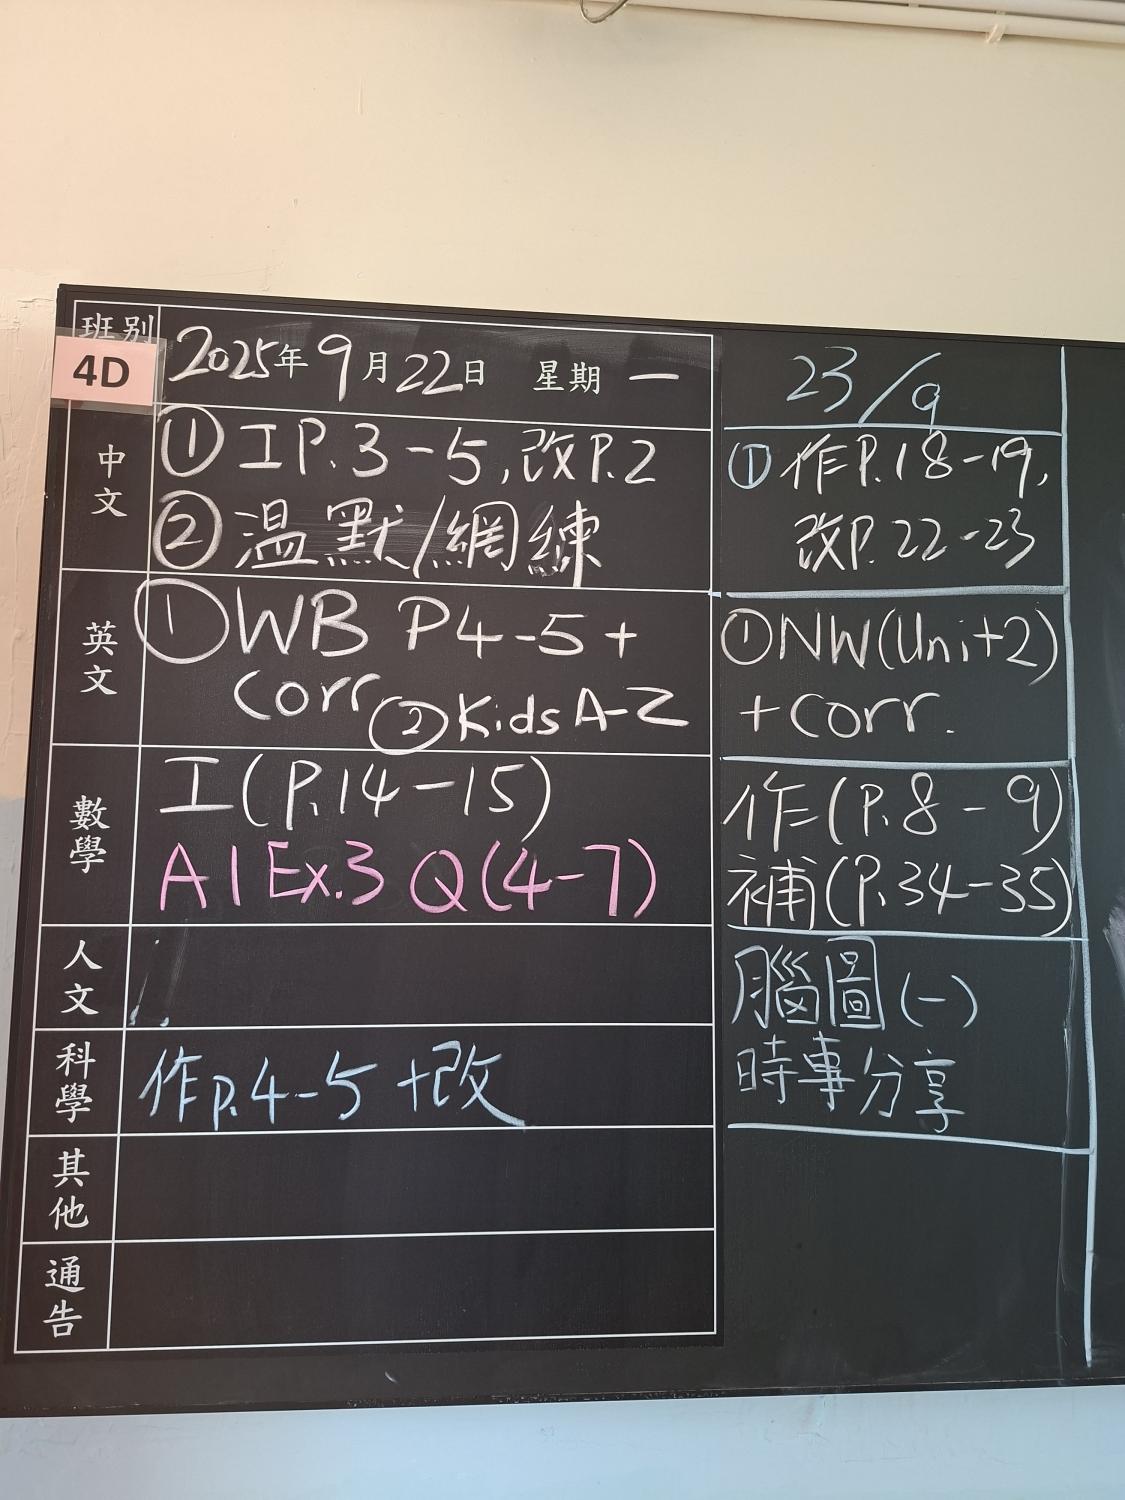 班別
4D
2025年9月22日 星期一
中文
①工P.3-5,改P.2
②温默/網練
英文
①WB P4-5+
corr ②Kids A-Z
數學
工(P.14-15)
A1 Ex.3 Q(4-7)
人文
科學
作P.4-5 +改
其他
通告
23/9
①作P.18-19,
改P.22-23
①NW(Unit2)
+corr.
作(P.8-9)
補(P.34-35)
腦圖(一)
時事分享